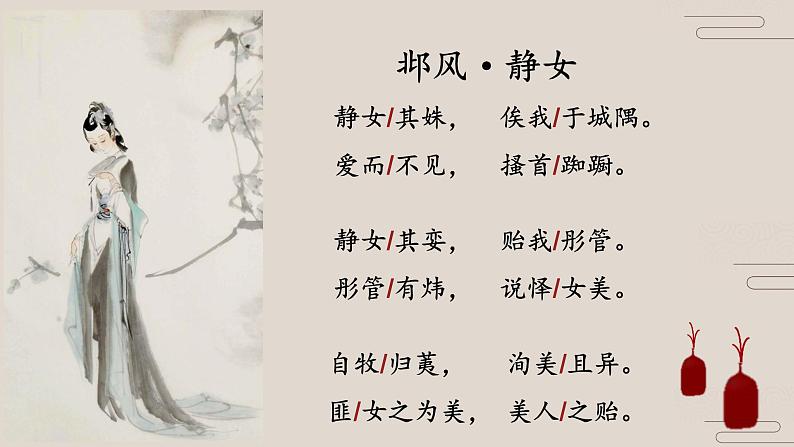 邶风·静女
静女/其姝， 俟我/于城隅。
爱而/不见， 搔首/踟蹰。
静女/其娈， 贻我/彤管。
彤管/有炜， 说怿/女美。
自牧/归荑， 洵美/且异。
匪/女之为美， 美人/之贻。